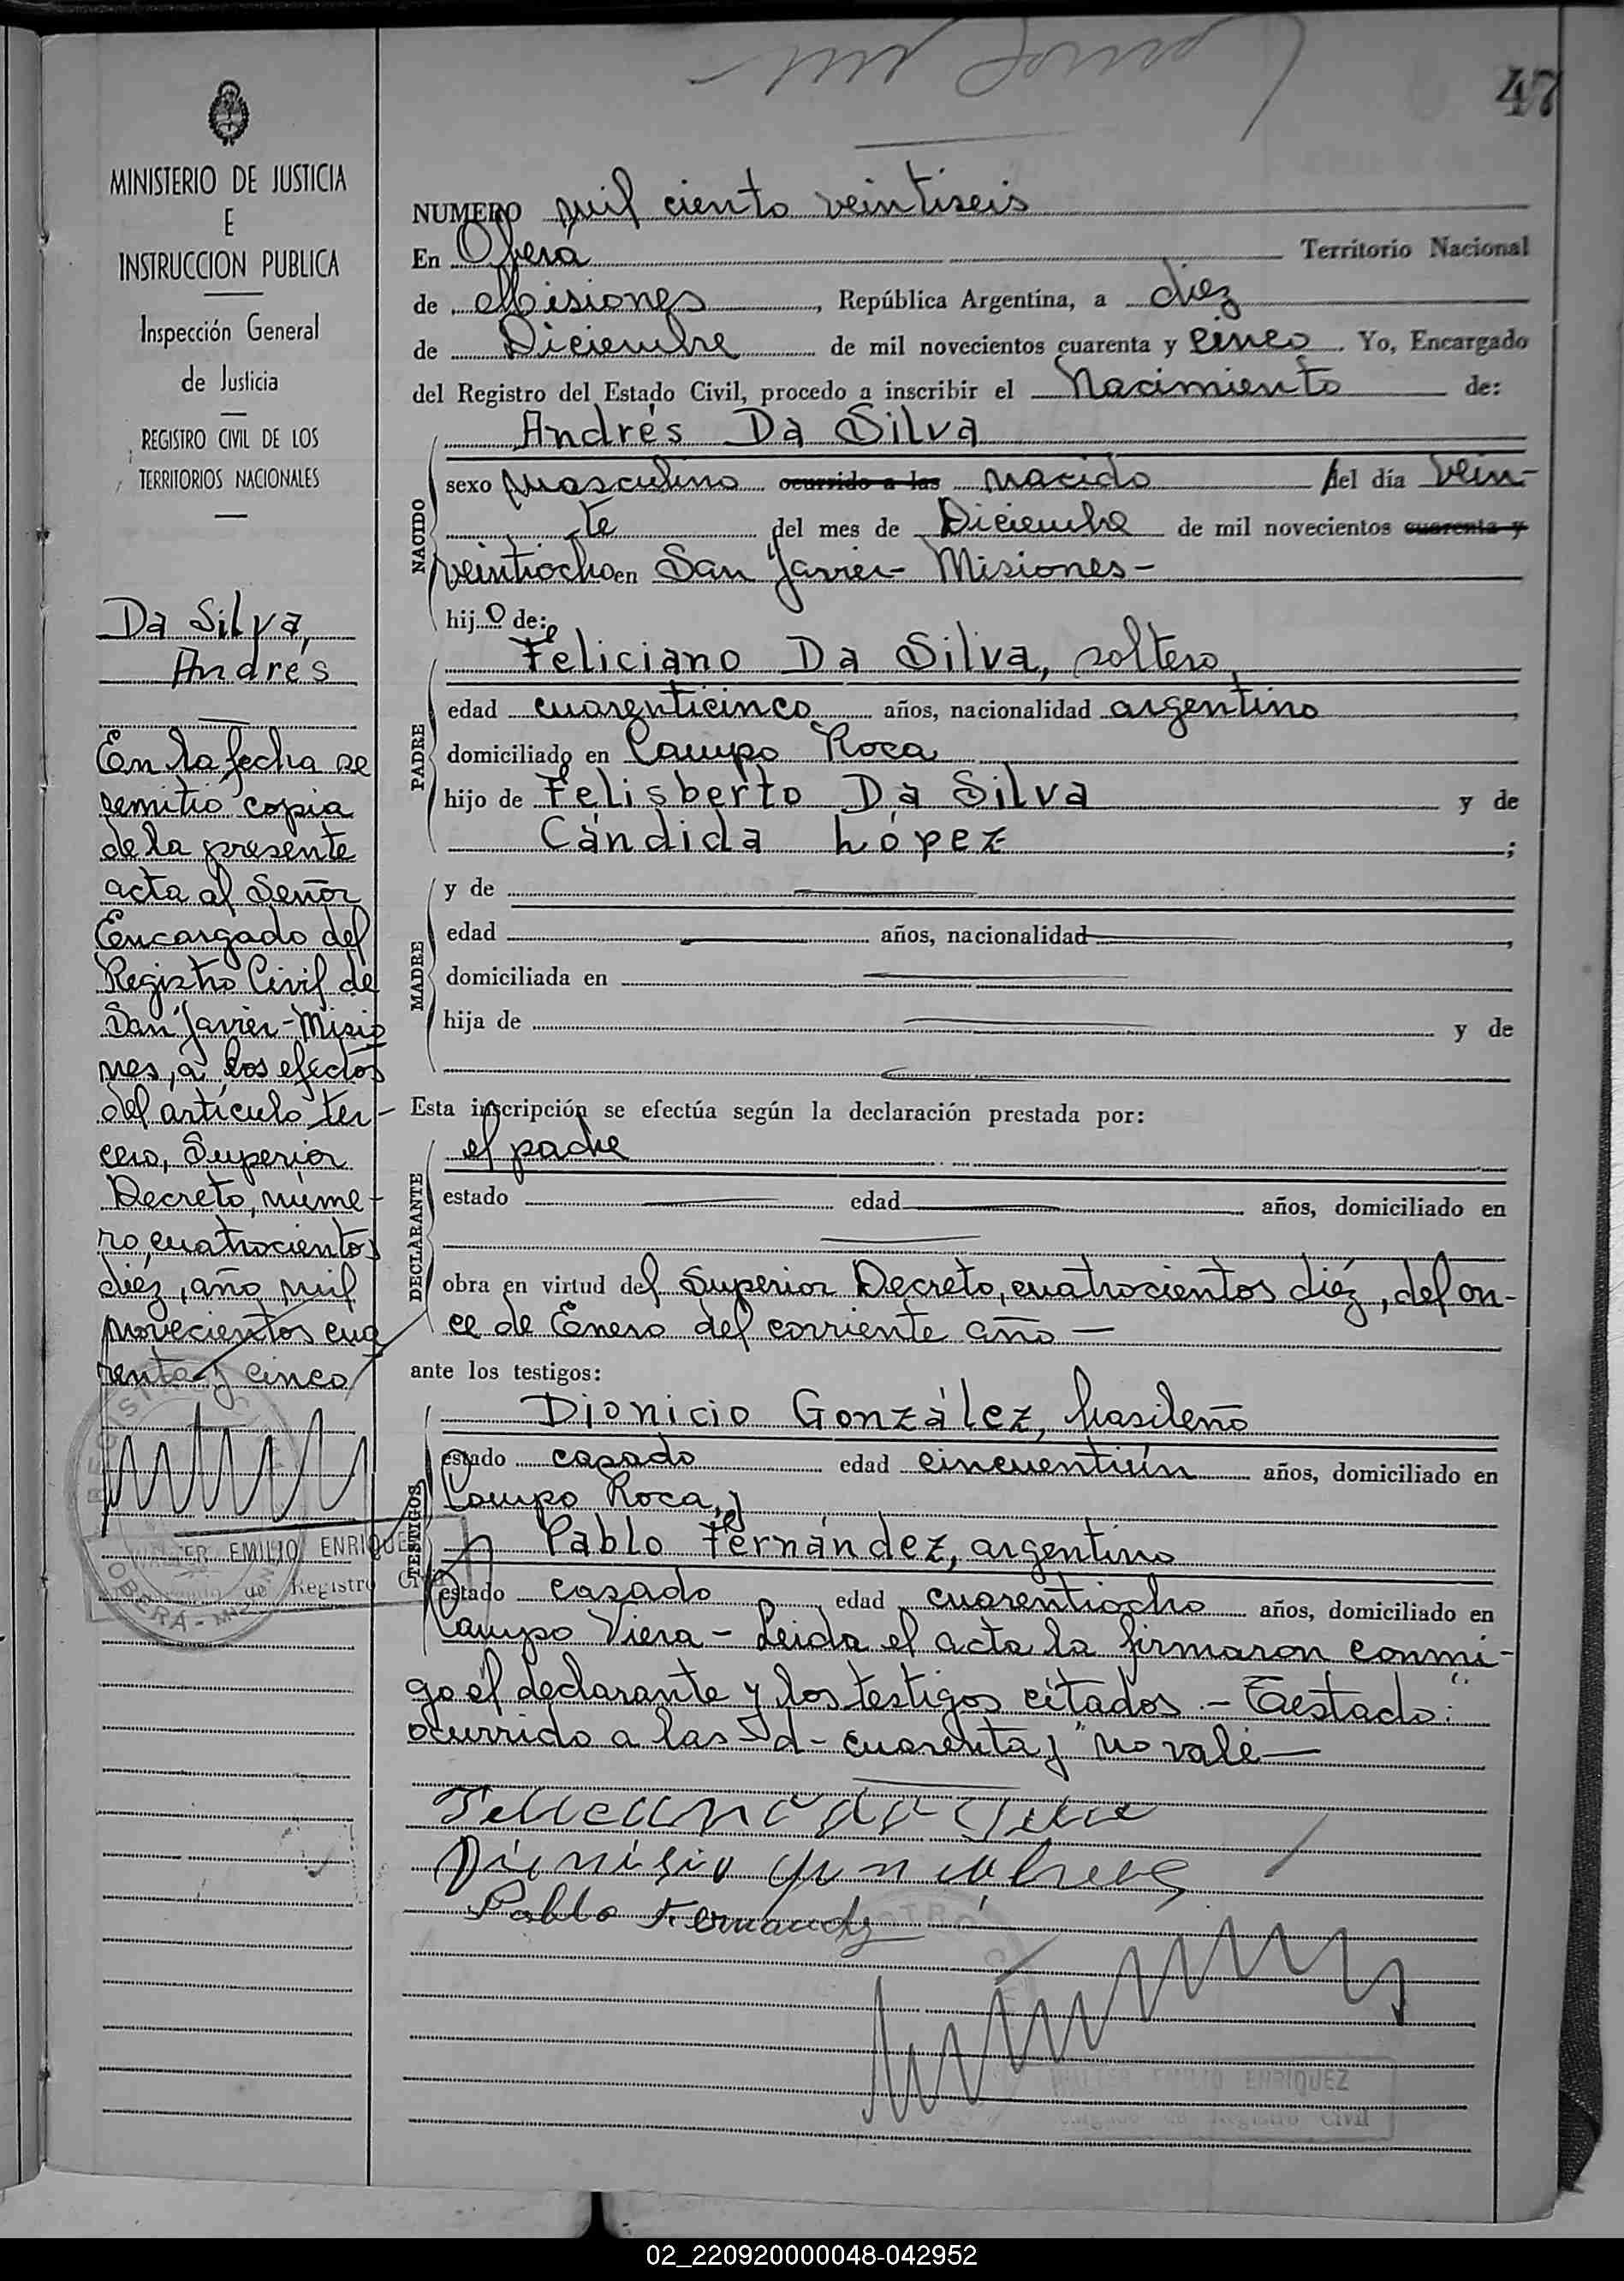 47
MINISTERIO DE JUSTICIA
E
INSTRUCCION PUBLICA
Inspección General
de Justicia
REGISTRO CIVIL DE LOS
TERRITORIOS NACIONALES
Da Silva,
Andrés
En la fecha se
remitió copia
de la presente
acta al Señor
Encargado del
Registro Civil de
San Javier-Misio
nes, a los efectos
del artículo ter-
cero, Superior
Decreto, núme-
ro, cuatrocientos
diéz, año mil
novecientos cua
renta y cinco
WALTER EMILIO ENRIQUE
de Registro Civil
OBERÁ-
NUMERO mil ciento veintiseis
En Oberá Territorio Nacional
de Misiones, República Argentina, a diez
de Diciembre de mil novecientos cuarenta y cinco. Yo, Encargado
del Registro del Estado Civil, procedo a inscribir el Nacimiento de:
NACIDO
Andrés Da Silva
sexo masculino ocurrido a las nacido el día vein-
te del mes de Diciembre de mil novecientos cuarenta y
veintiocho en San Javier- Misiones-
hijo de:
PADRE
Feliciano Da Silva, soltero
edad cuarenticinco años, nacionalidad argentino
domiciliado en Campo Roca
hijo de Felisberto Da Silva y de
Cándida López ;
MADRE
y de
edad años, nacionalidad ,
domiciliada en
hija de y de
Esta inscripción se efectúa según la declaración prestada por:
DECLARANTE
el padre
estado edad años, domiciliado en
obra en virtud del Superior Decreto, cuatrocientos diéz, del on-
ce de Enero del corriente año —
ante los testigos:
TESTIGOS
Dionicio González, brasileño
estado casado edad cincuentiún años, domiciliado en
Campo Roca, y
Pablo Fernández, argentino
estado casado edad cuarentiocho años, domiciliado en
Campo Viera - Leida el acta la firmaron conmi-
go el declarante y los testigos citados. - Testado: "
ocurrido a las - d - cuarenta y" no vale —
Pablo Fernandz
WALTER EMILIO ENRIQUEZ
Registro Civil
02_220920000048-042952